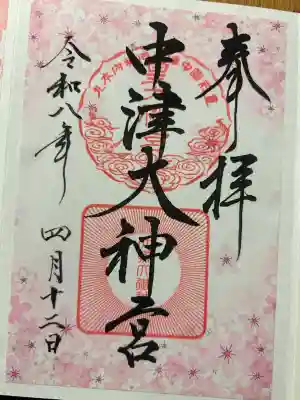 奉拝
中津大神宮
令和八年
四月十二日